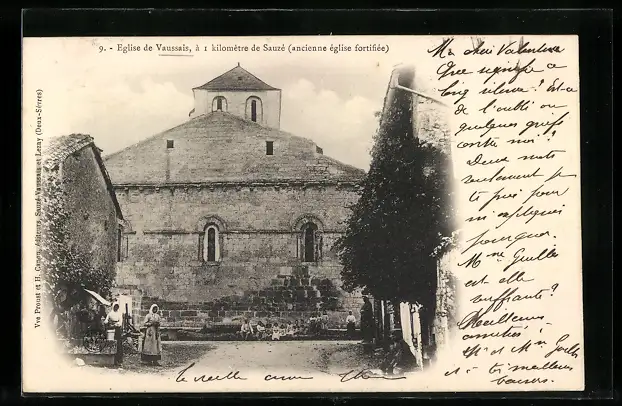 9. - Eglise de Vaussais, à 1 kilomètre de Sauzé (ancienne église fortifiée)
Vve Proust et H. Canon, éditeurs, Sauzé-Vaussais et Lezay (Deux-Sèvres)
Ma chère Valentine
Que signifie ce
long silence? Est-ce
de l'oubli ou
quelques griefs
contre moi?
Deux mots
seulement je
te prie pour
m'expliquer
pourquoi.
Mme
est-elle
souffrante?
Meilleures
amitiés
Mr et Mme
et bien meilleurs
baisers